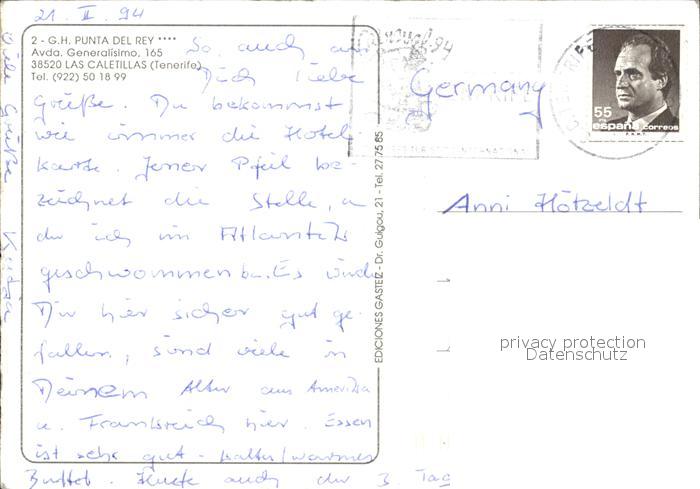 21. II. 94
2 - G.H. PUNTA DEL REY ****
Avda. Generalísimo, 165
38520 LAS CALETILLAS (Tenerife)
Tel. (922) 50 18 99
So, auch an
Dich liebe
Grüße. Du bekommst
wie immer die Hotel-
karte. Jener Pfeil be-
zeichnet die Stelle, an
der ich im Atlantik
geschwommen bin. Es würde
Dir hier sicher gut ge-
fallen, sind viele in
Deinem Alter aus Amerika
u. Frankreich hier. Essen
ist sehr gut - kaltes/warmes
Buffet. Heute auch der 3. Tag
Viele Grüße
EDICIONES GASTEIZ - Dr. Guigou, 21 - Tel. 27 75 65
94
Germany
55
españa correos
Anni Hötzeldt
privacy protection
Datenschutz